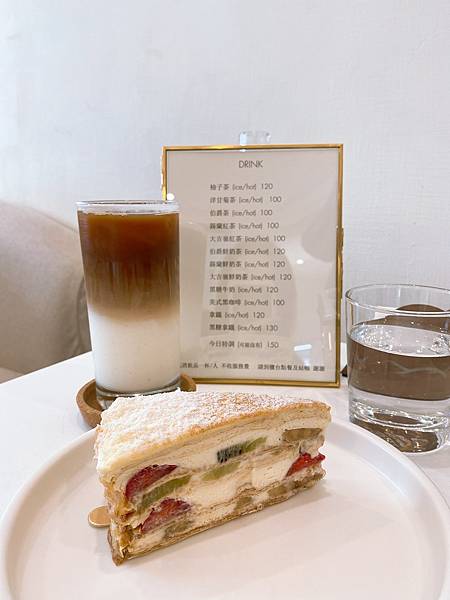 DRINK
柚子茶 (ice/hot) 120
洋甘菊茶 (ice/hot) 100
伯爵茶 (ice/hot) 100
錫蘭紅茶 (ice/hot) 100
大吉嶺紅茶 (ice/hot) 100
伯爵鮮奶茶 (ice/hot) 120
錫蘭鮮奶茶 (ice/hot) 120
大吉嶺鮮奶茶 (ice/hot) 120
黑糖牛奶 (ice/hot) 120
美式黑咖啡 (ice/hot) 100
拿鐵 (ice/hot) 120
黑糖拿鐵 (ice/hot) 130
今日特調 150
消飲品一杯/人 不收服務費 請到櫃台點餐及結帳 謝謝